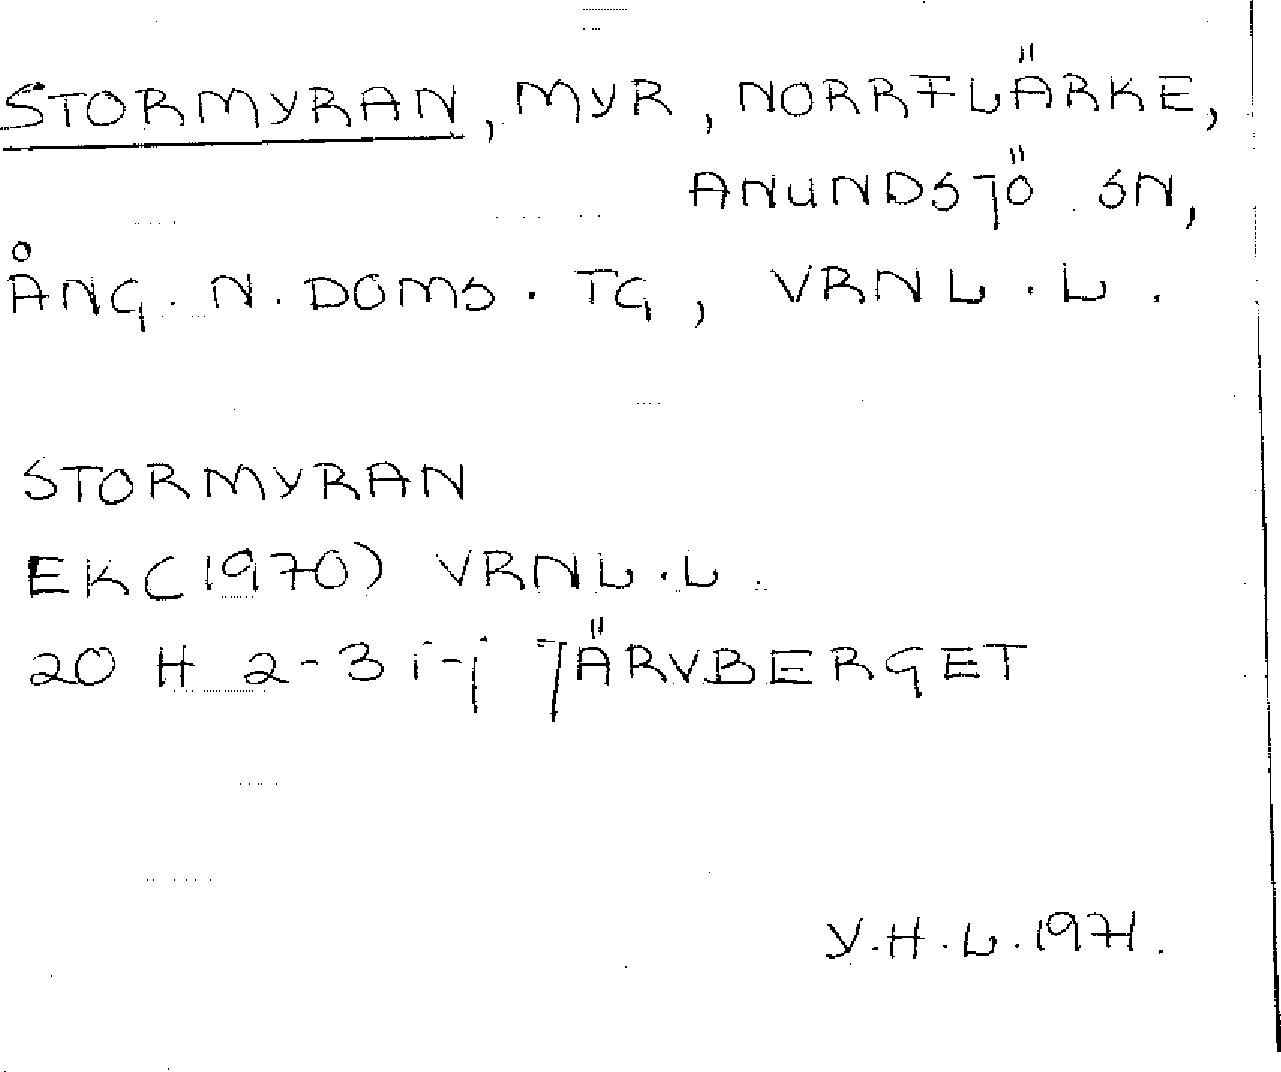 STORMYRAN, MYR, NORRFLÄRKE,
ANUNDSJÖ SN,
ÅNG. N. DOMS. TG, VRNL.L.
STORMYRAN
EK(1970) VRNL.L.
20 H 2-3 i-j JÄRVBERGET
Y.H.L. 1971.